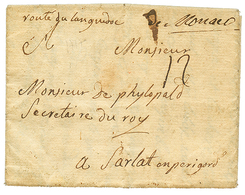 route du languedoc De Rouael
A Monsieur
Monsieur de phylopald
Secretaire du roy
a Sarlat en perigord